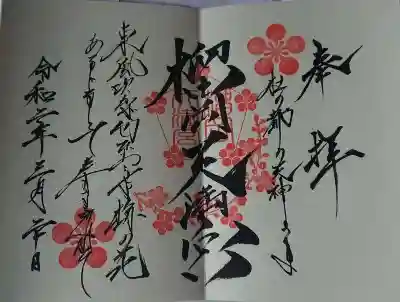 奉拝
杜の都の天神さま
榴岡天満宮
東風吹かば匂ひおこせよ梅の花
あるじなしとて春な忘れそ
令和二年三月二十日